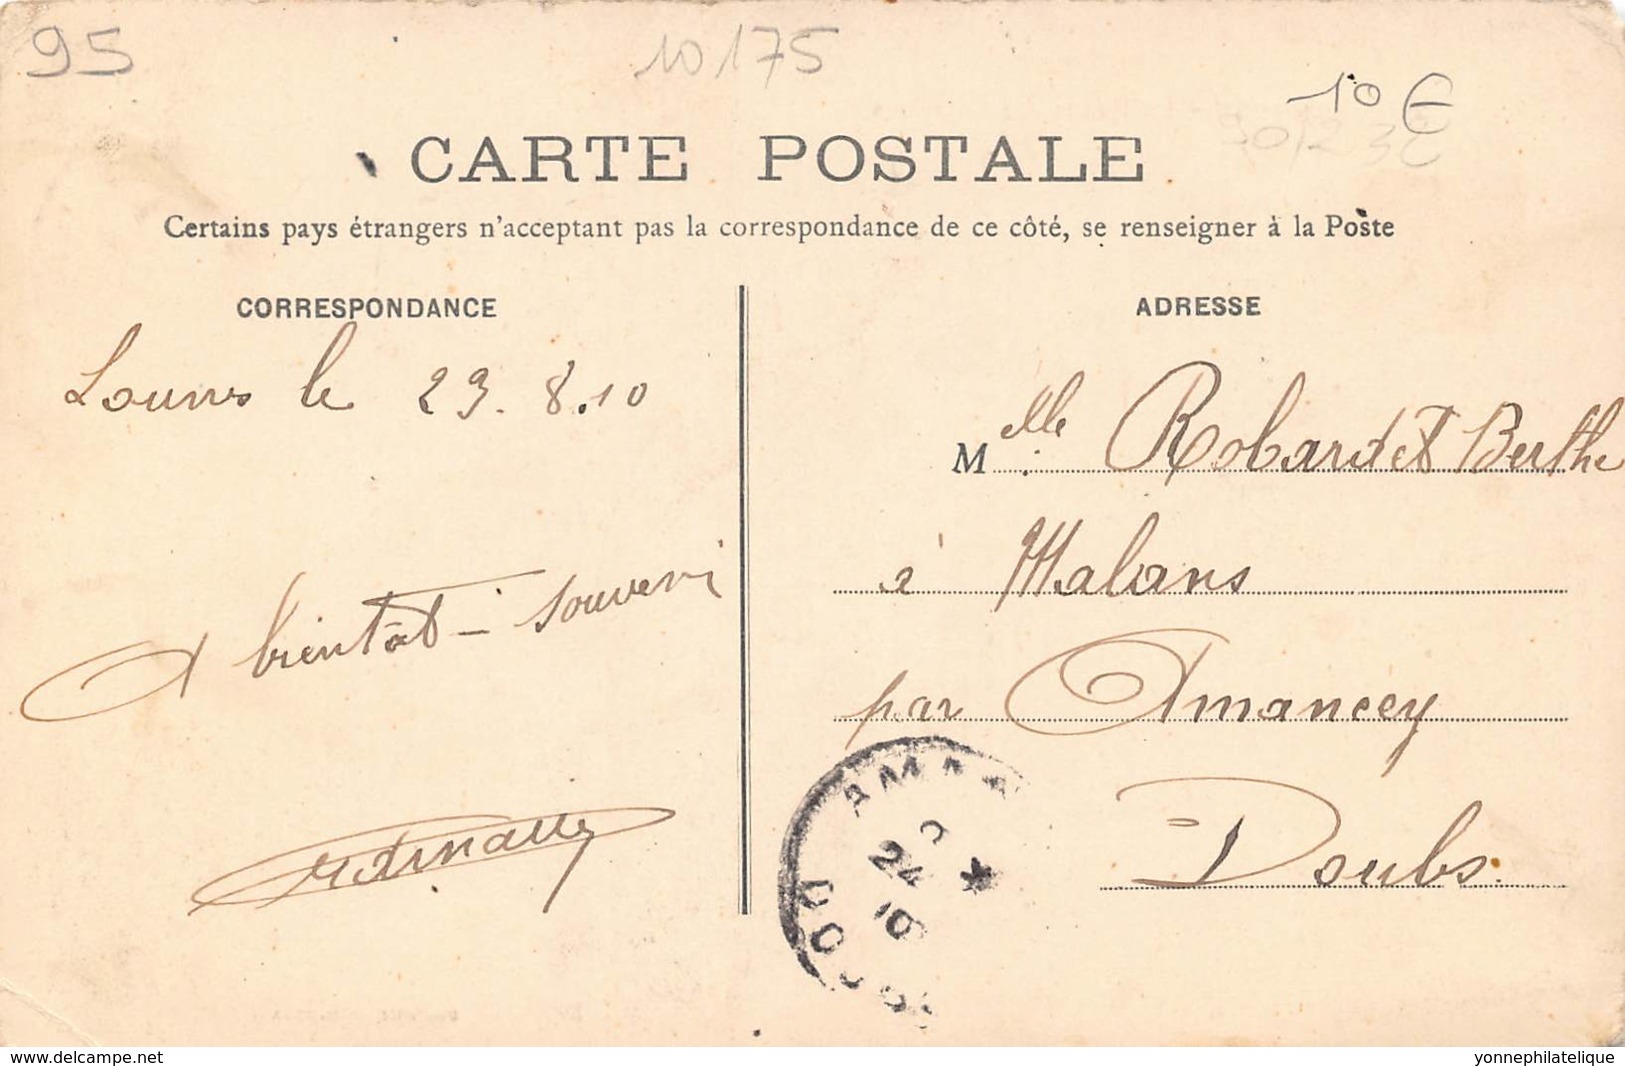 95
10175
10 €
CARTE POSTALE
Certains pays étrangers n'acceptant pas la correspondance de ce côté, se renseigner à la Poste
CORRESPONDANCE
Louvres le 23.8.10
A bientôt - souvenir
ADRESSE
Melle Robardet Berthe
à Malans
par Amancey
Doubs.
AMA
24
10
DOU
www.delcampe.net
yonnephilatelique